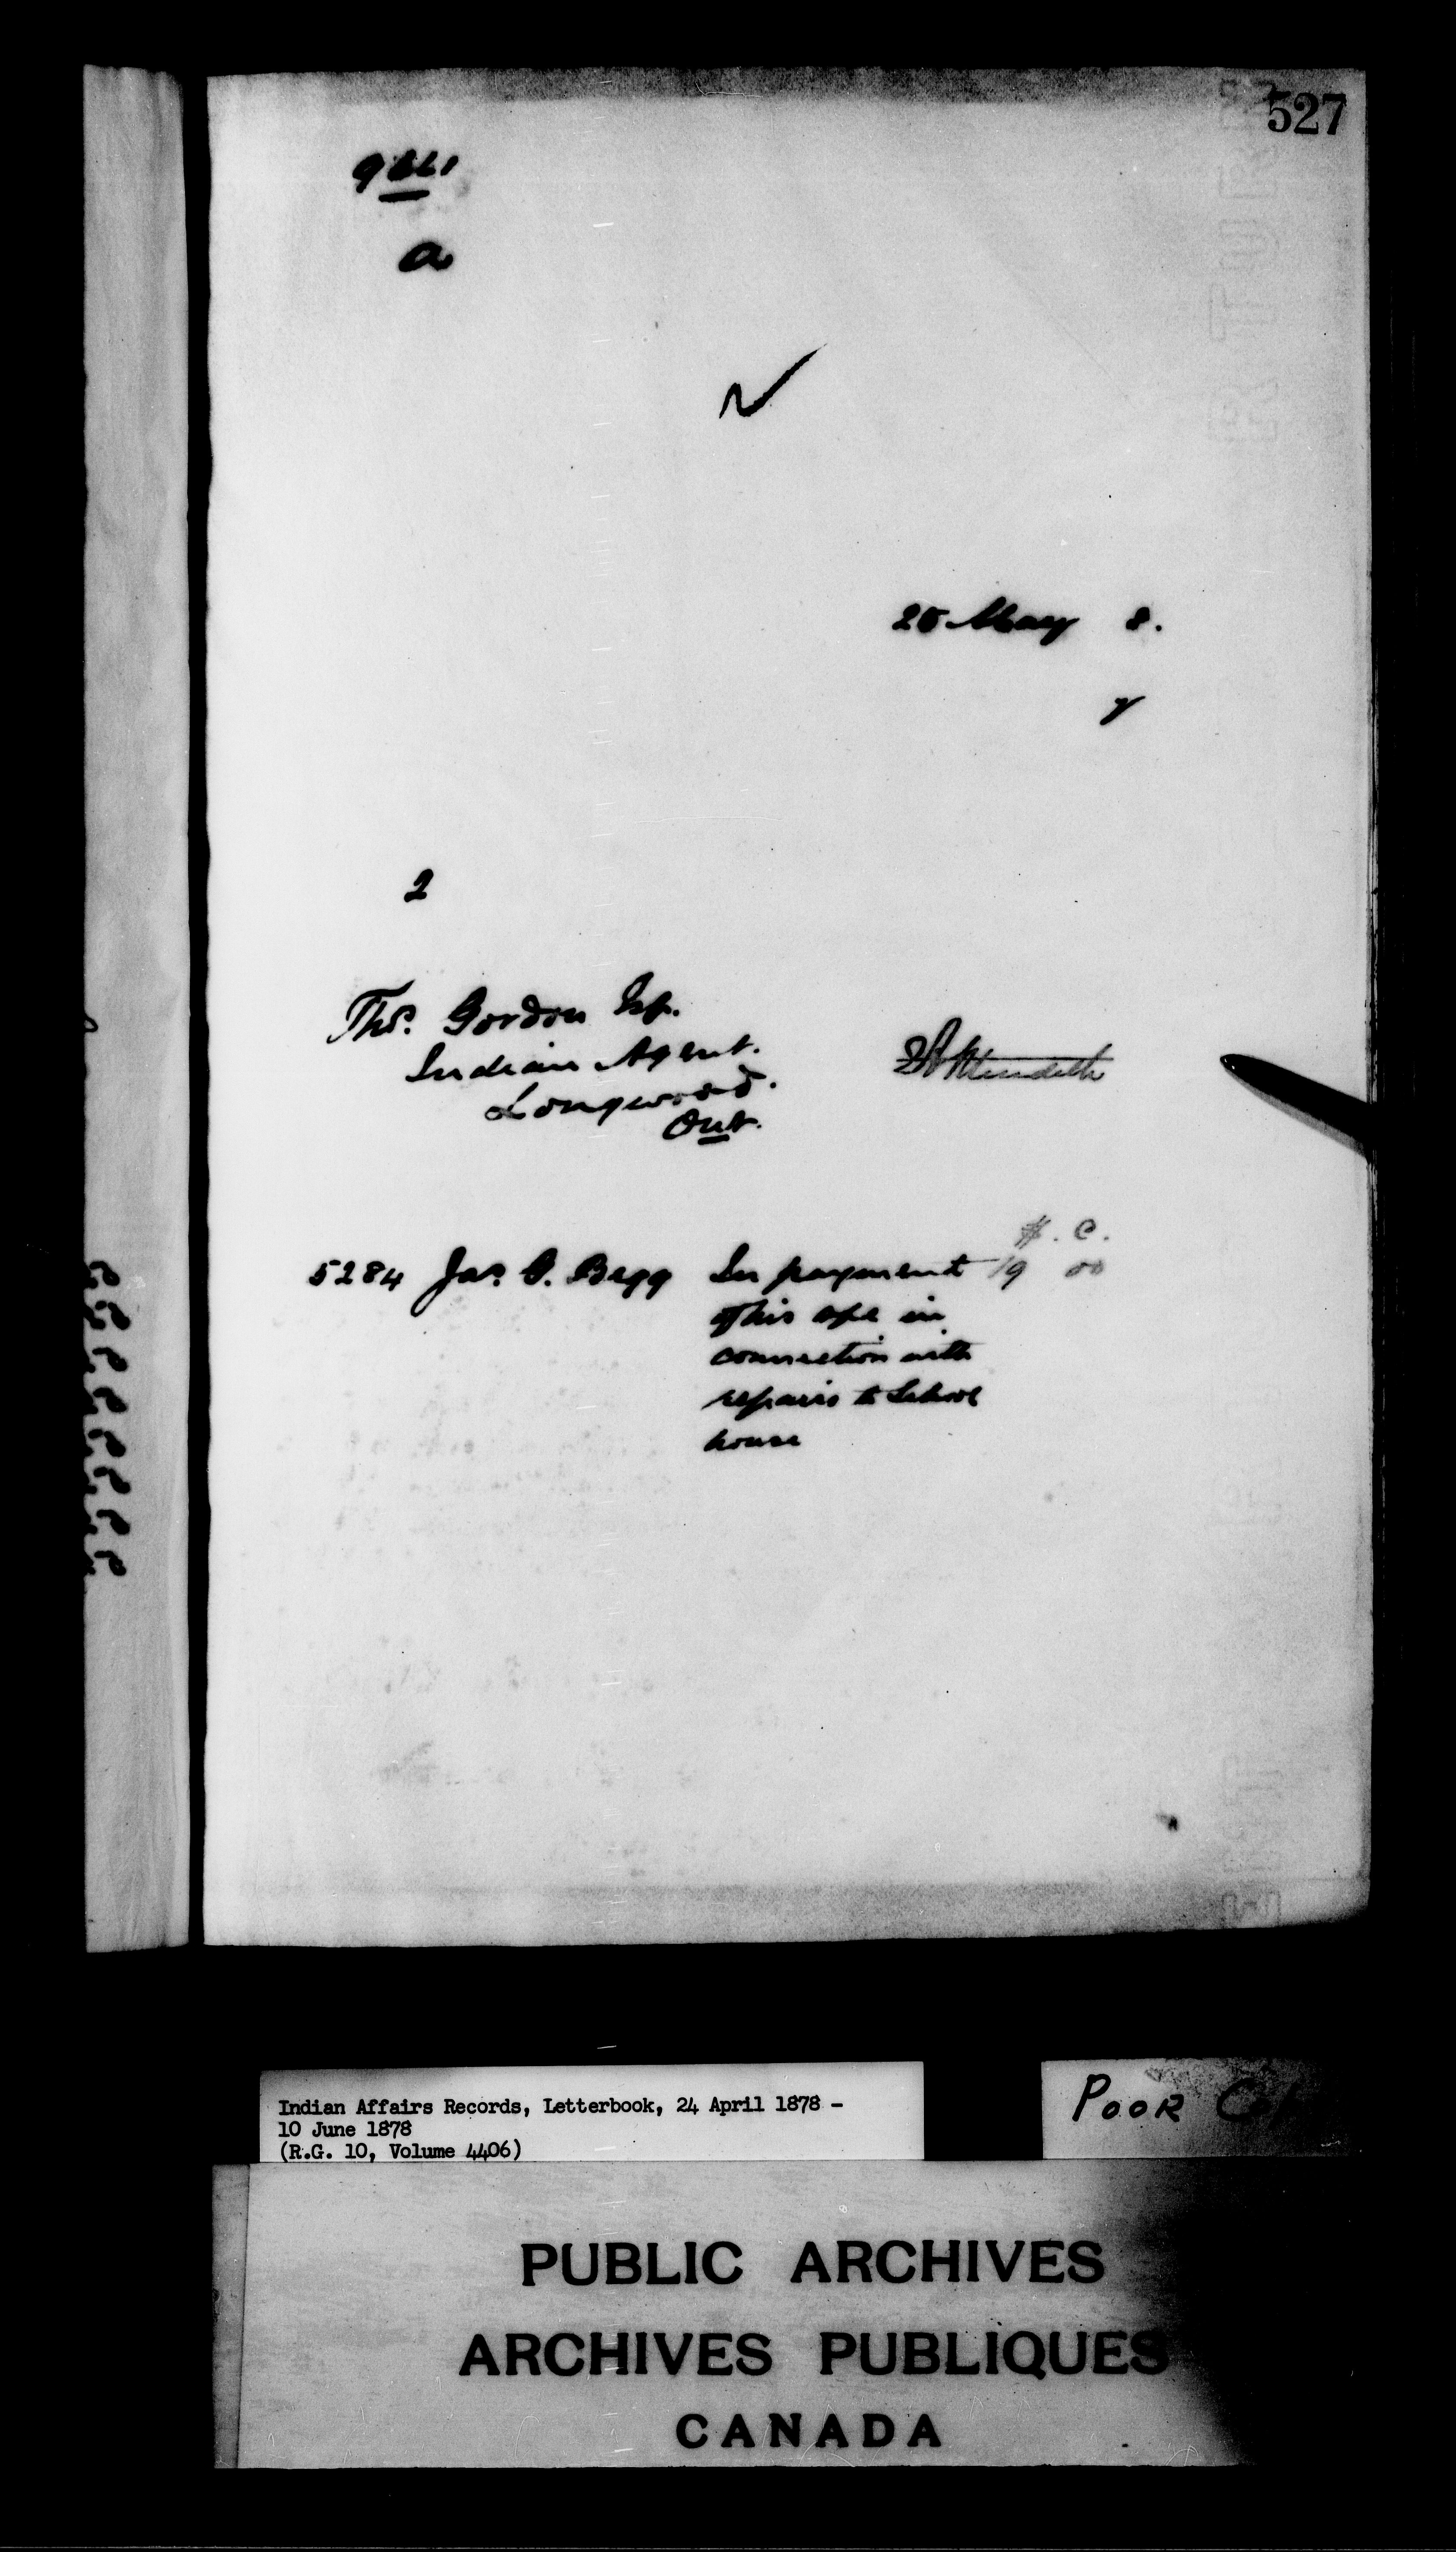 527
a
25 May 8.
y
2
Thos. Gordon Esq.
Indian Agent.
Longwood.
Ont.
$. c.
5284 Jas. O. Begg In payment 19 00
of his a/c in
connection with
repairs to School
house
Indian Affairs Records, Letterbook, 24 April 1878 -
10 June 1878
(R.G. 10, Volume 4406)
POOR
PUBLIC ARCHIVES
ARCHIVES PUBLIQUES
CANADA